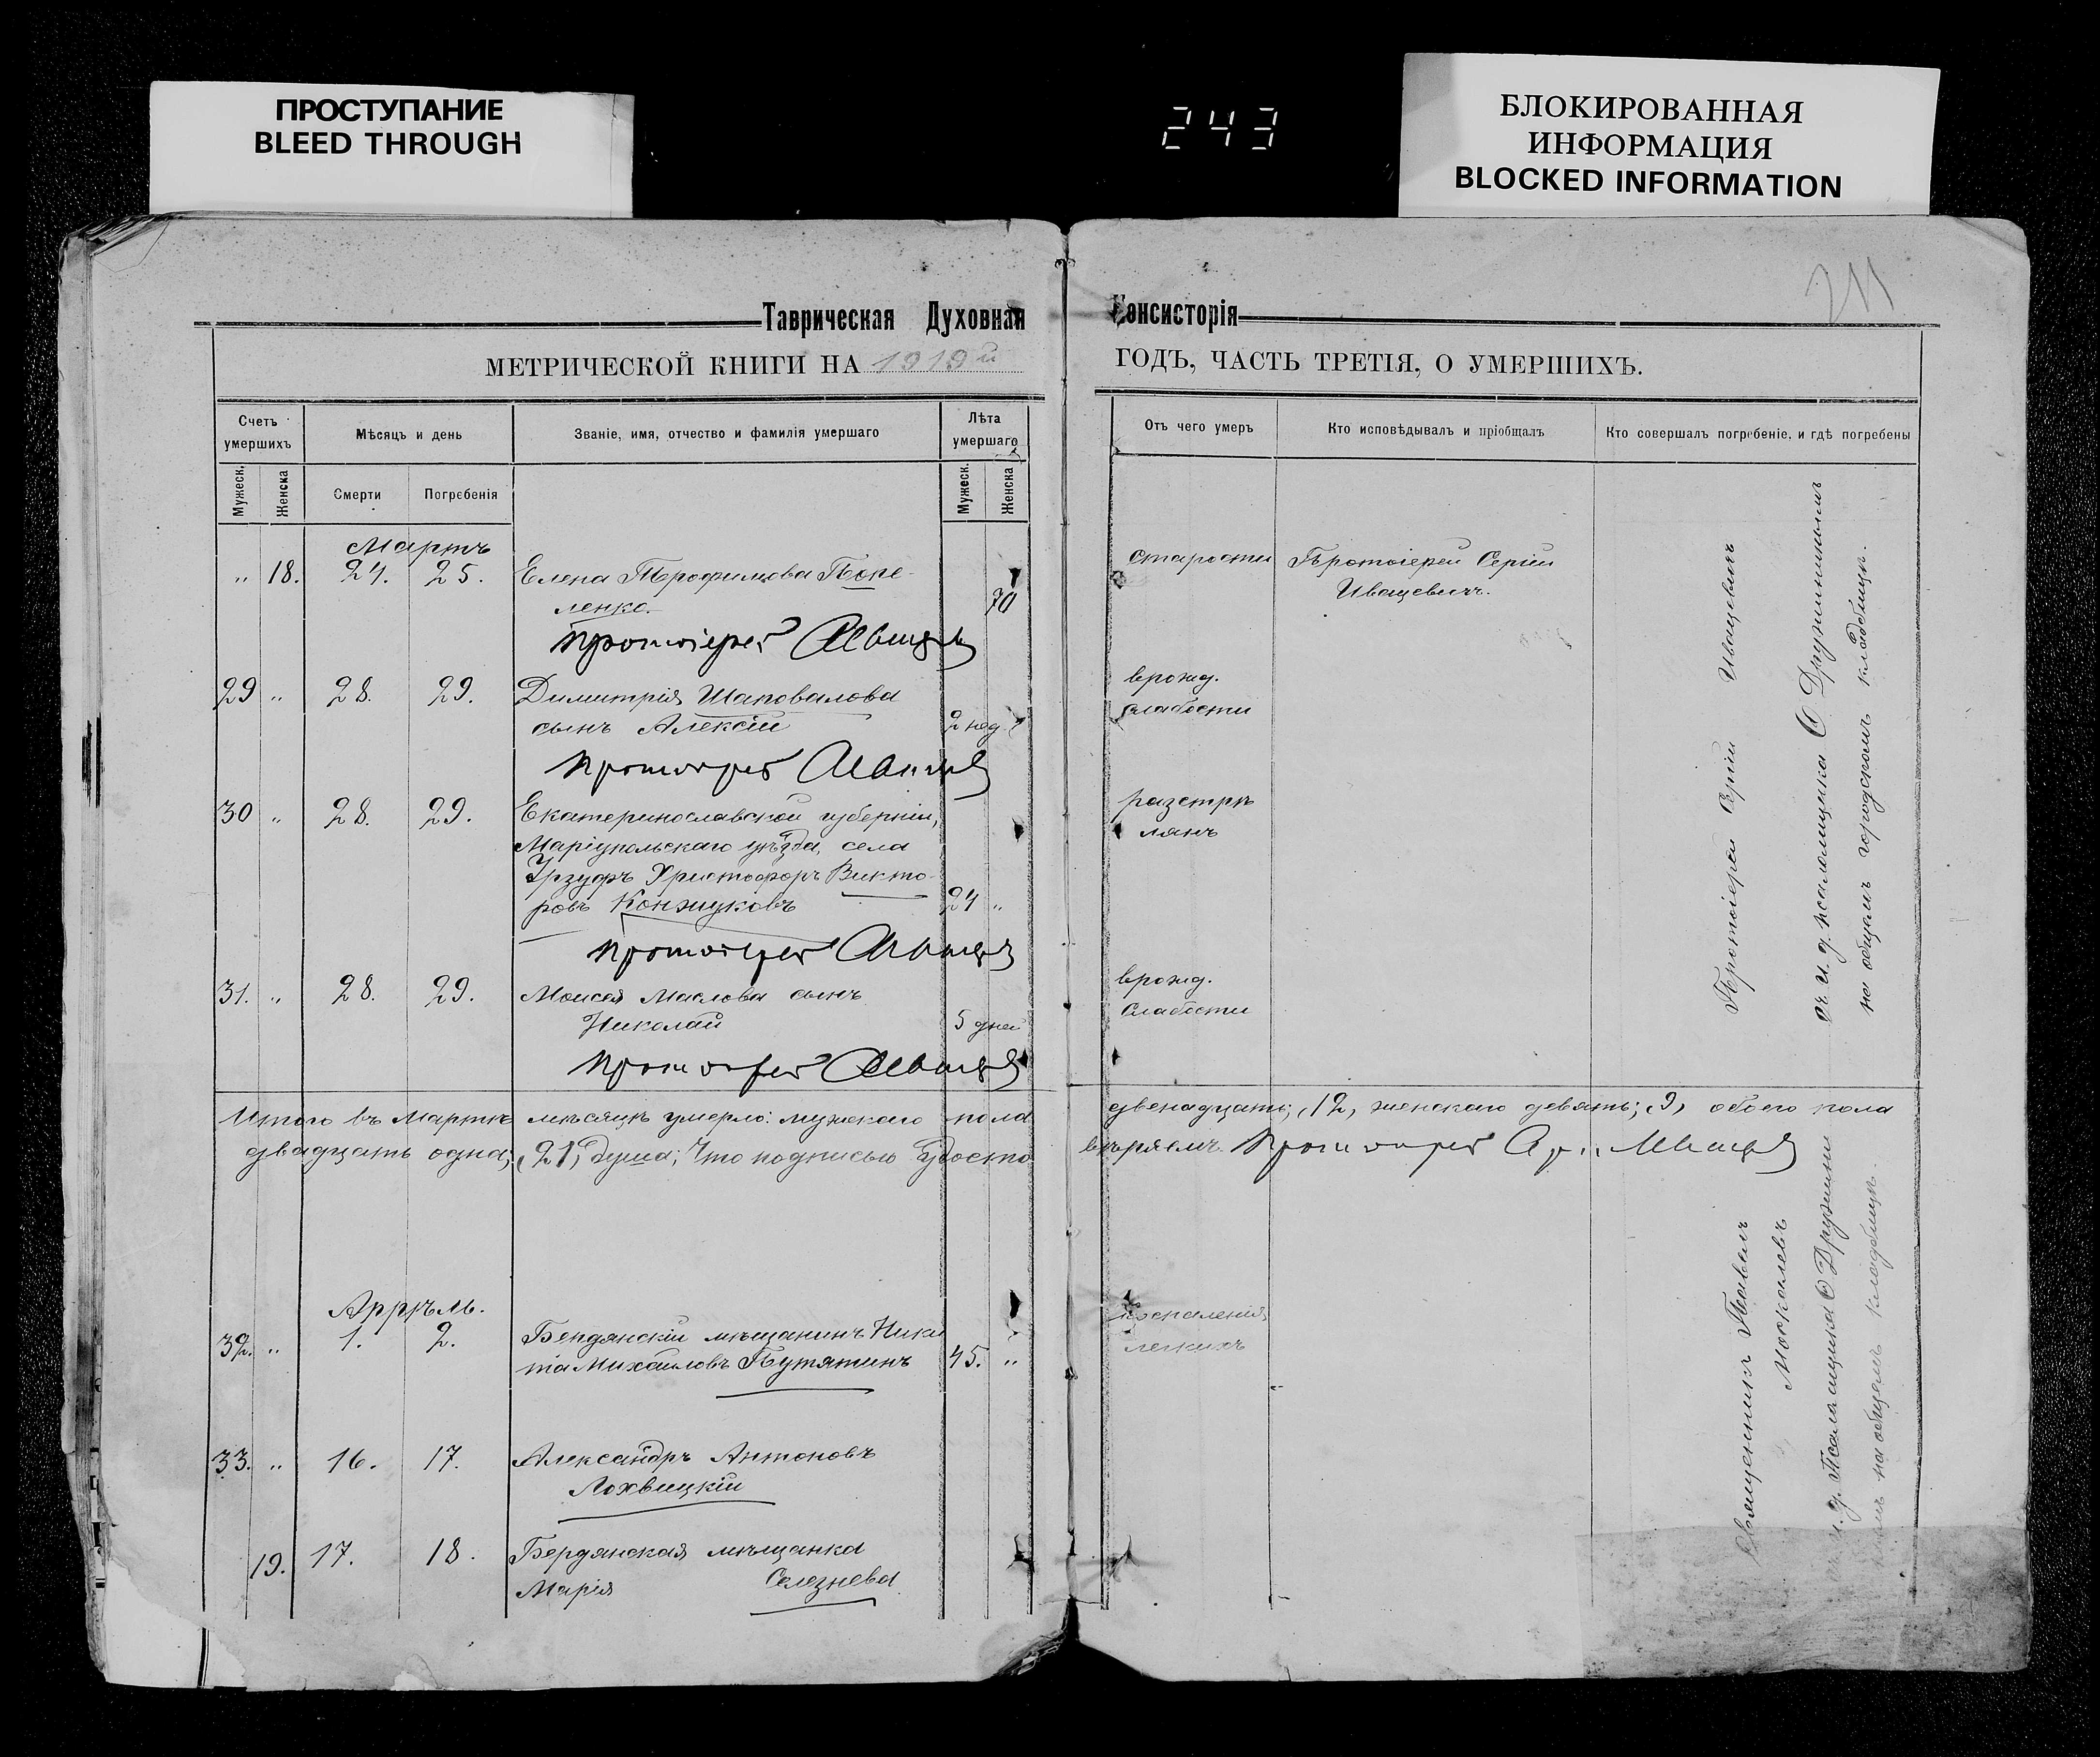 ПРОСТУПАНИЕ
BLEED THROUGH
243
БЛОКИРОВАННАЯ
ИНФОРМАЦИЯ
BLOCKED INFORMATION
211
Таврическая Духовная Консисторія
МЕТРИЧЕСКОЙ КНИГИ НА 1919й ГОДЪ, ЧАСТЬ ТРЕТІЯ, О УМЕРШИХЪ.
Счетъ умершихъ
Мѣсяцъ и день
Званіе, имя, отчество и фамилія умершаго
Лѣта умершаго
Отъ чего умеръ
Кто исповѣдывалъ и пріобщалъ
Кто совершалъ погребеніе, и гдѣ погребены
Мужеск. Женска Смерти Погребенія Мужеск. Женска
Мартъ
" 18. 24. 25. Елена Трофимова
ленко. 70
старости Протоіерей Сергій
Иващевичъ.
Протоіерей
29 " 28. 29. Димитрія Шаповалова
сынъ Алексій 2 нед.
врожд.
слабости
Протоіерей
30 " 28. 29. Екатеринославской губерніи,
Маріупольскаго уѣзда, села
Урзуфъ Христофоръ Викто-
ровъ 24 "
разстрѣ
лянъ
Протоіерей
31. " 28. 29. Моисея Маслова сынъ
Николай 5 дней
врожд.
слабости
Протоіерей
Протоіерей Сергій Иващевичъ
съ и. д. псаломщика С Дружининымъ
на общемъ городскомъ кладбищѣ.
Итого въ Мартѣ мѣсяцѣ умерло: мужескаго пола двенадцать; (12) женскаго девять; (9) обоего пола
двадцать одна; (21) душа; Что подписью удосто вѣряемъ. Протоіерей
Апрѣль.
32. " 1. 2. Бердянскій мѣщанинъ Ники
та Михаиловъ Путятинъ 45. "
воспаленія
легкихъ
33. " 16. 17. Александръ Антоновъ
Лохвицкій
19. 17. 18. Бердянская мѣщанка
Марія Селезнева
Священникъ Павелъ
Москалевъ
и. д. Псаломщика С Дружини
нымъ на общемъ кладбищѣ.